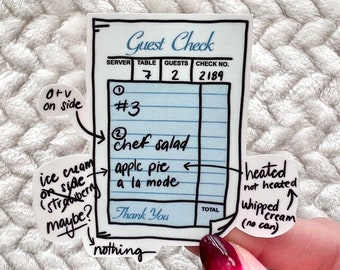 Guest Check
SERVER TABLE GUESTS CHECK NO.
7 2 2189
①
#3
②
chef salad
apple pie
a la mode
Thank You TOTAL
o+v
on side
ice cream
on side
(strawberry)
maybe?
nothing
heated
not heated
whipped
cream
(no can)